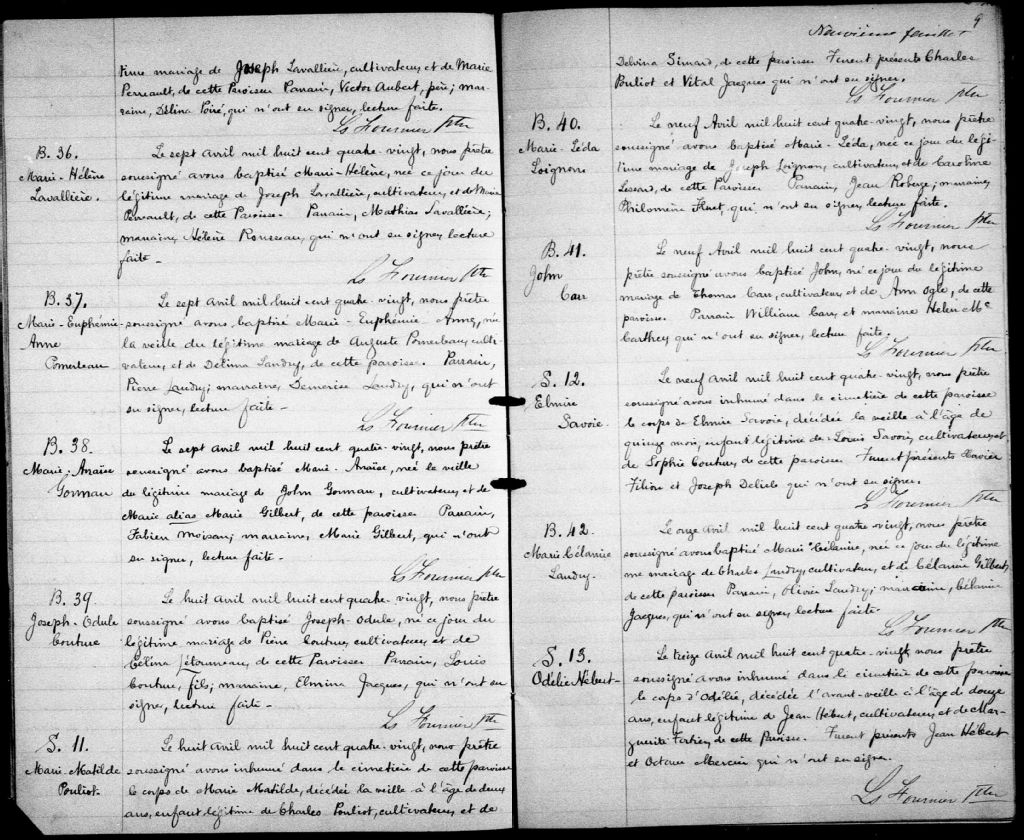 time mariage de Joseph Lavallière, cultivateur, et de Marie
Perreault, de cette Paroisse Parrain, Victor Aubert, père; mar-
raine, Délina Poiré, qui n'ont su signer, lecture faite.
Ls Fournier ptre
B. 36.
Marie-Hélène
Lavallière.
Le sept Avril mil huit cent quatre-vingt, nous prêtre
soussigné avons baptisé Marie-Hélène, née ce jour du
légitime mariage de Joseph Lavallière, cultivateur, et de Marie
Perreault, de cette Paroisse. Parrain, Mathias Lavallière;
marraine, Hélène Rousseau, qui n'ont su signer, lecture
faite-
Ls Fournier ptre
B. 37.
Marie-Euphémie-
Anne
Pomerleau
Le sept avril mil huit cent quatre-vingt, nous prêtre
soussigné avons baptisé Marie-Euphémie-Anne, née
la veille du légitime mariage de Auguste Pomerleau, culti-
vateur, et de Délina Landry, de cette paroisse. Parrain,
Pierre Landry; marraine, Démerise Landry, qui n'ont
su signer, lecture faite-
Ls Fournier ptre
B. 38.
Marie-Anaïse
Gorman
Le sept avril mil huit cent quatre-vingt, nous prêtre
soussigné avons baptisé Marie-Anaïse, née la veille
du légitime mariage de John Gorman, cultivateur, et de
Marie alias Marie Gilbert, de cette paroisse Parrain,
Fabien Moisan; marraine, Marie Gilbert, qui n'ont
su signer, lecture faite.
Ls Fournier ptre
B. 39.
Joseph-Odule
Couture
Le huit Avril mil huit cent quatre-vingt, nous prêtre
soussigné avons baptisé Joseph-Odule, né ce jour du
légitime mariage de Pierre Couture, cultivateur, et de
Célina Létourneau, de cette Paroisse Parrain, Louis
Couture, fils; marraine, Elmina Jacques, qui n'ont su
signer, lecture faite-
Ls Fournier ptre
S. 11.
Marie-Matilde
Pouliot.
Le huit Avril mil huit cent quatre-vingt, nous prêtre
soussigné avons inhumé dans le cimetière de cette paroisse
le corps de Marie Matilde, décédée la veille à l'âge de deux
ans, enfant légitime de Charles Pouliot, cultivateur, et de
9
Neuvième feuillet
Delvina Simard, de cette paroisse Furent présents Charles
Pouliot et Vital Jacques qui n'ont su signer.
Ls Fournier ptre
B. 40.
Marie-Léda
Loignon
Le neuf Avril mil huit cent quatre-vingt, nous prêtre
soussigné avons baptisé Marie-Léda, née ce jour du légi-
time mariage de Joseph Loignon, cultivateur, et de Caroline
Lessard, de cette Paroisse Parrain, Jean Roberge; marraine,
Philomène Huet, qui n'ont su signer, lecture faite.
Ls Fournier ptre
B. 41.
John
Carr
Le neuf Avril mil huit cent quatre-vingt, nous
prêtre soussigné avons baptisé John, né ce jour du légitime
mariage de Thomas Carr, cultivateur, et de Ann Ogle, de cette
paroisse. Parrain William Carr, et marraine Helen Mc
Carthey qui n'ont su signer, lecture faite.
Ls Fournier ptre
S. 12.
Elmire
Savoie.
Le neuf Avril mil huit cent quatre-vingt, nous prêtre
soussigné avons inhumé dans le cimetière de cette paroisse
le corps de Elmire Savoie, décédée la veille à l'âge de
quinze mois, enfant légitime de Louis Savoie, cultivateur, et
de Sophie Couture, de cette paroisse Furent présents Xavier
Filion et Joseph Delisle qui n'ont su signer.
Ls Fournier ptre
B. 42.
Marie Célanire
Landry.
Le onze Avril mil huit cent quatre-vingt, nous prêtre
soussigné avons baptisé Marie Célanire, née ce jour du légitime
me mariage de Charles Landry, cultivateur, et de Célanire Gilbert,
de cette paroisse Parrain, Olivier Landry; marraine, Célanire
Jacques, qui n'ont su signer, lecture faite
Ls Fournier ptre
S. 13.
Odélie Hébert-
Le treize Avril mil huit cent quatre-vingt, nous prêtre
soussigné avons inhumé dans le cimetière de cette paroisse
le corps d'Odélie, décédée l'avant-veille à l'âge de douze
ans, enfant légitime de Jean Hébert, cultivateur, et de Mar-
guerite Fortier, de cette Paroisse. Furent présents Jean Hébert
et Octave Mercier qui n'ont su signe.
Ls Fournier ptre